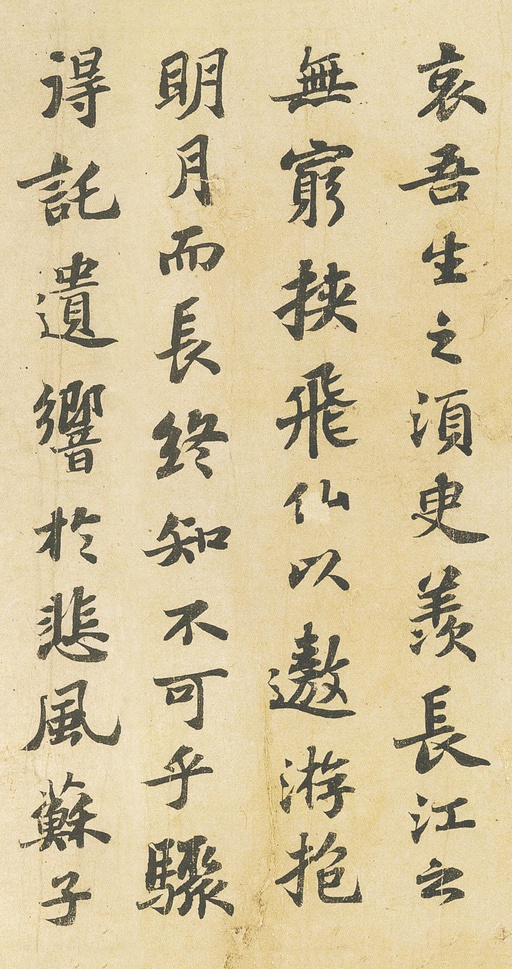 哀吾生之須臾羨長江之
無窮挾飛仙以遨游抱
明月而長終知不可乎驟
得託遺響於悲風蘇子